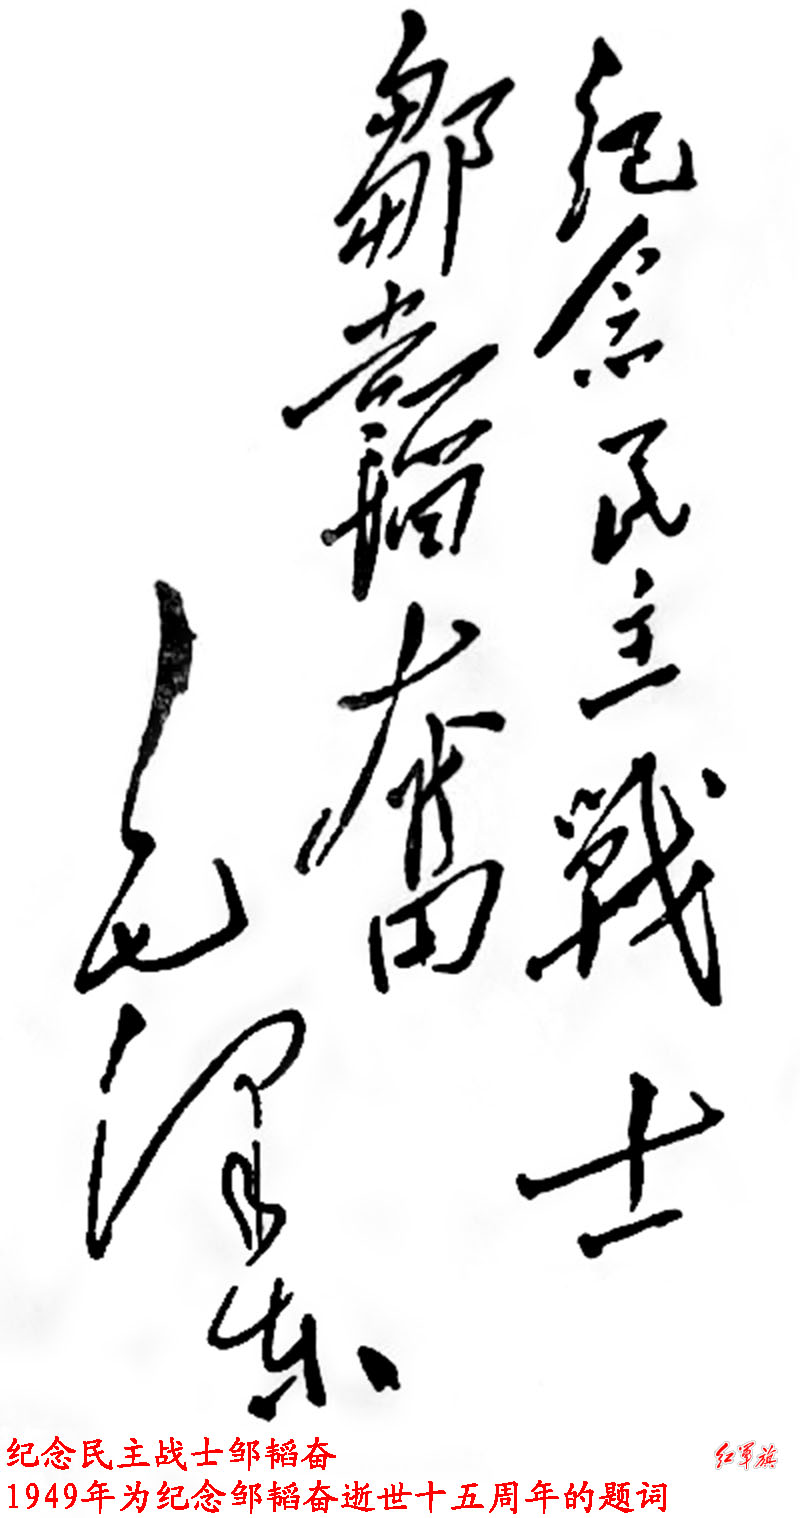 紀念民主戰士
鄒韜奮
毛澤东
纪念民主战士邹韬奋
1949年为纪念邹韬奋逝世十五周年的题词
红军旗